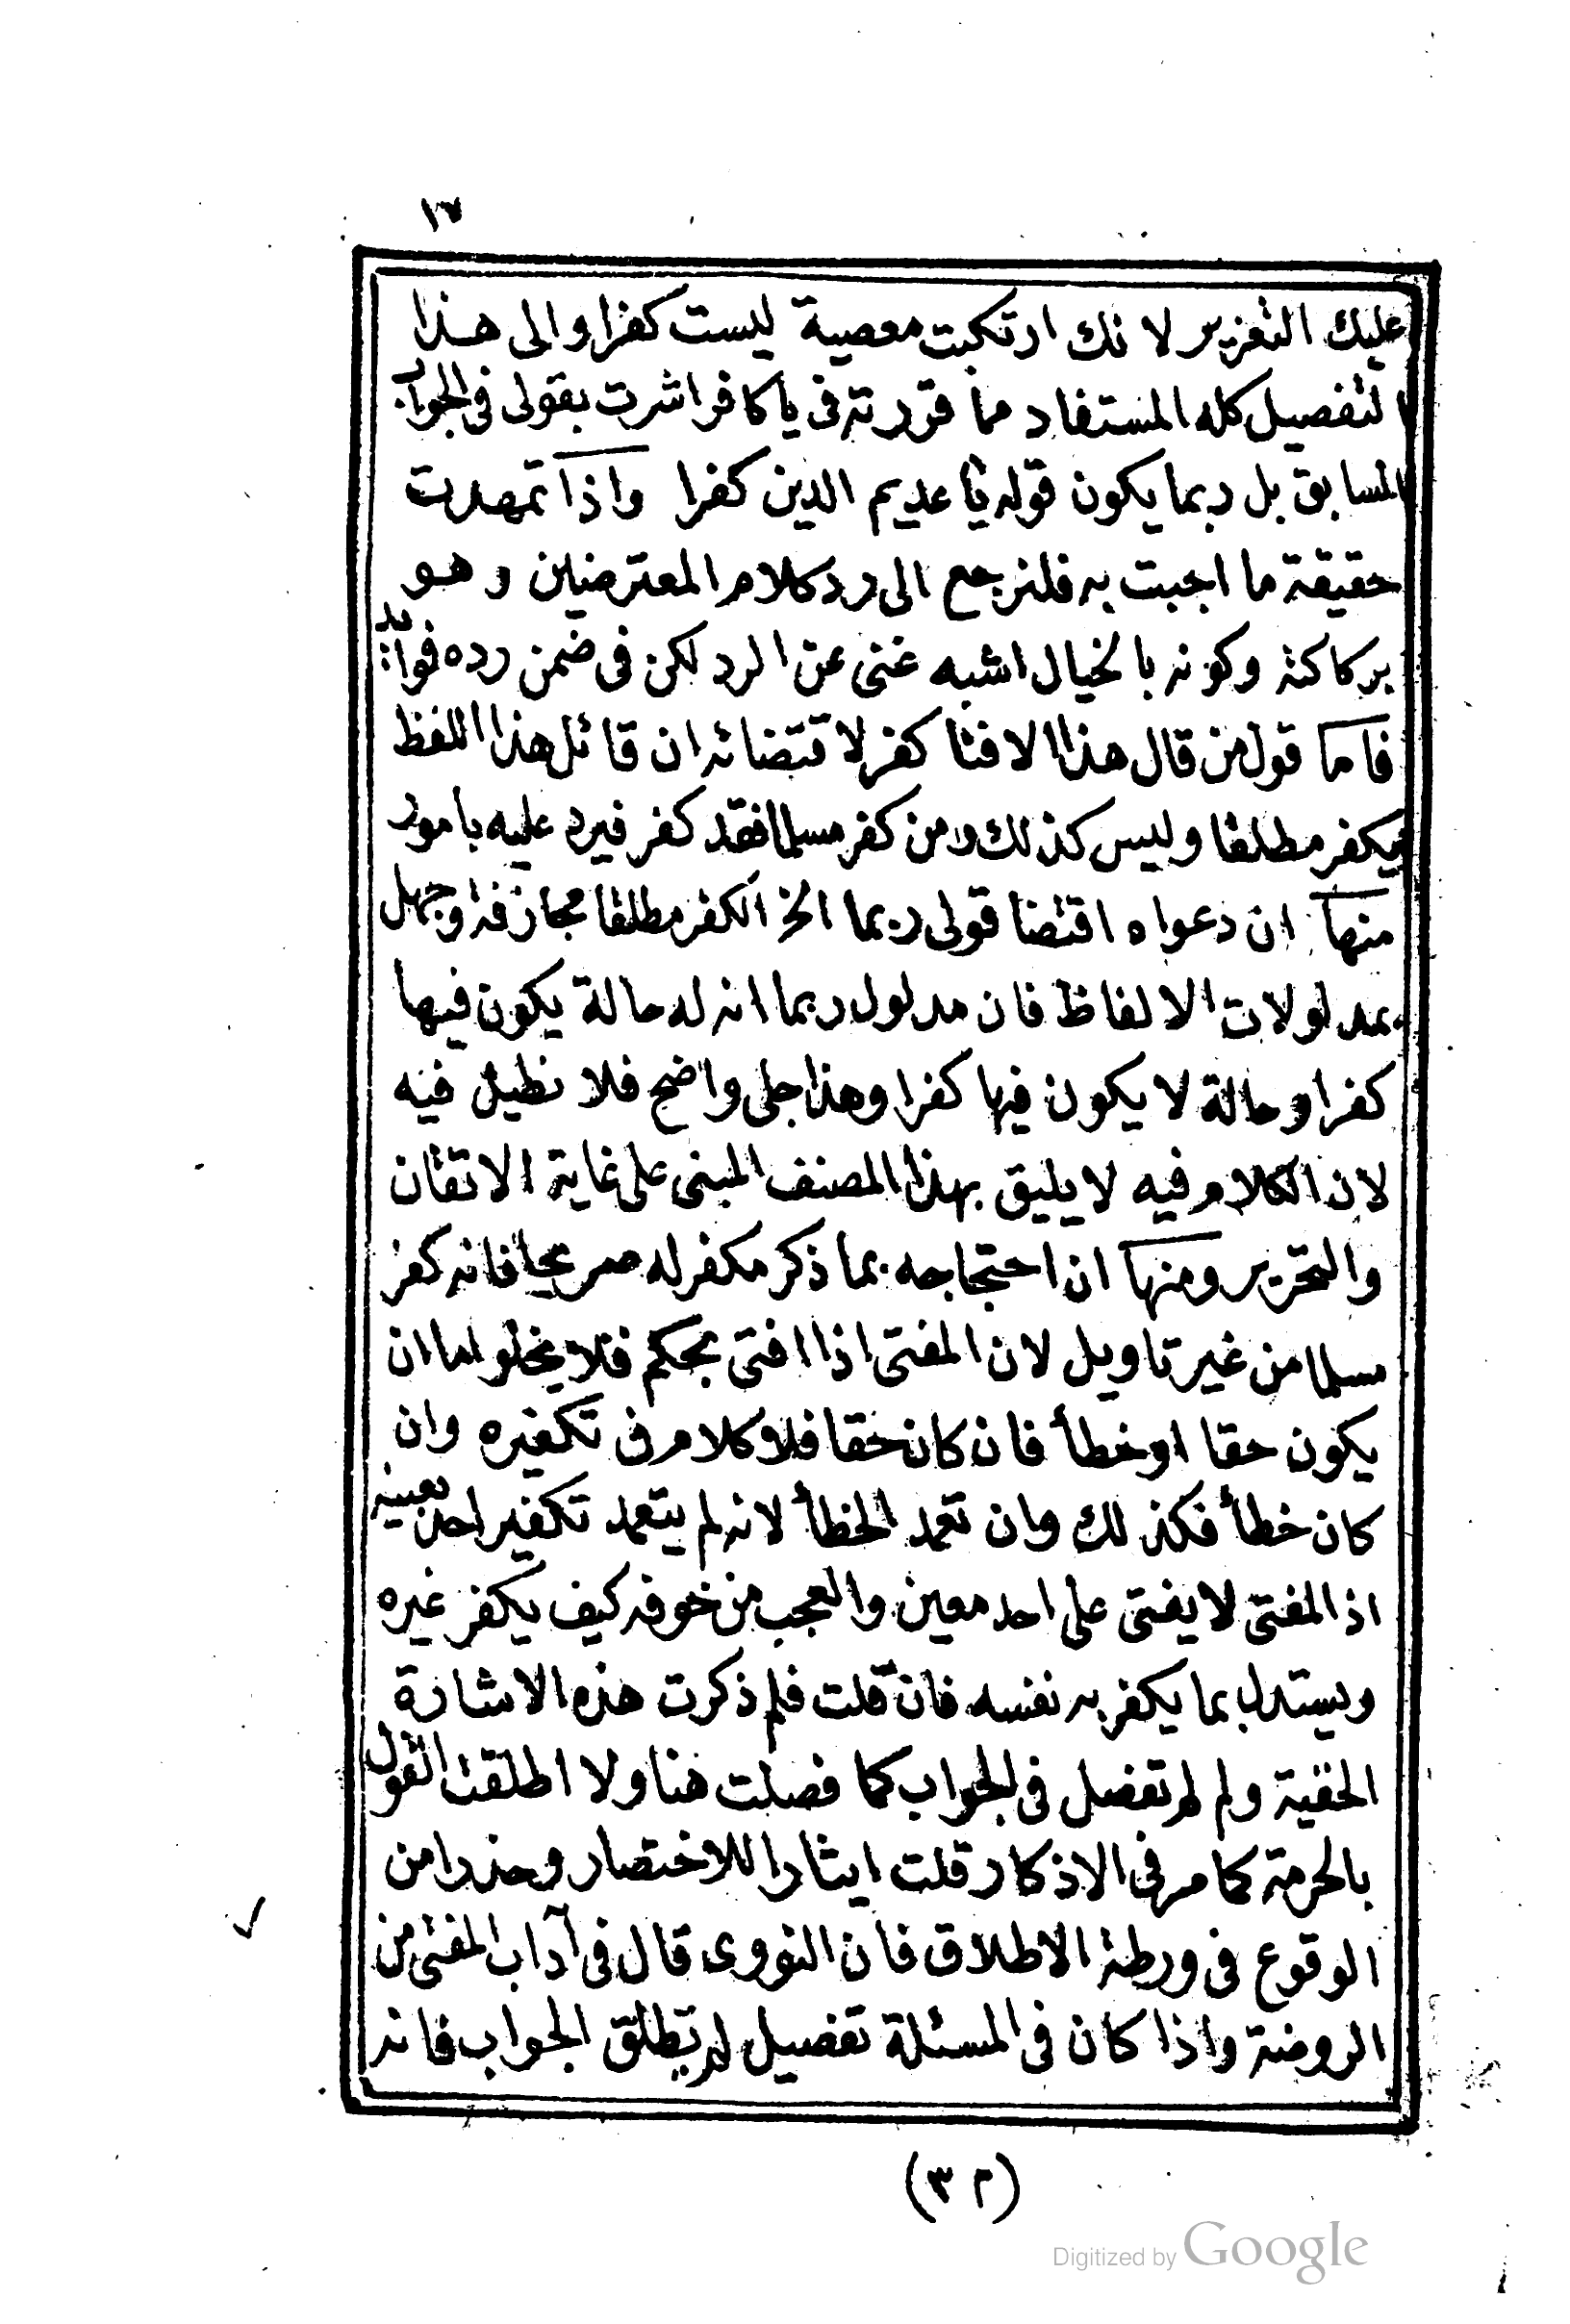 ١٧
عليك التعزير لانك ارتكبت معصية ليست كفرا والى هذا
التفصيل كله المستفاد مما قررته فى يا كافر اشرت بقولى فى الجواب
السابق بل ربما يكون قوله يا عديم الدين كفرا واذا تمهدت
حقيقة ما اجبت به فلنرجع الى رد كلام المعترضين وهو
بركاكته وكونه بالخيال اشبه غنى عن الرد لكن فى ضمن رده فوائد
فاما قول من قال هذا الافتا كفر لاقتضائه ان قائل هذا اللفظ
يكفر مطلقا وليس كذلك ومن كفر مسلما فقد كفر فيرد عليه بامور
منها ان دعواه اقتضا قولى ربما الخ الكفر مطلقا مجازفة وجهل
بمدلولات الالفاظ فان مدلول ربما انه له حالة يكون فيها
كفرا وحالة لا يكون فيها كفرا وهذا جلى واضح فلا نطيل فيه
لان الكلام فيه لا يليق بهذا المصنف المبنى على غاية الاتقان
والتحرير ومنها ان احتجاجه بما ذكر مكفر له صريحا فانه كفر
مسلما من غير تاويل لان المفتى اذا افتى بحكم فلا يخلو اما ان
يكون حقا او خطأ فان كان حقا فلا كلام فى تكفيره وان
كان خطأ فكذلك وان تعمد الخطأ لانه لم يتعمد تكفير احد بعينه
اذ المفتى لا يفتى على احد معين والعجب من خوفه كيف يكفر غيره
ويستدل بما يكفر به نفسه فان قلت فلم ذكرت هذه الاشارة
الخفية ولم لم تفصل فى الجواب كما فصلت هنا ولا اطلقت القول
بالحرمة كما مر فى الاذكار قلت ايثارا للاختصار وحذرا من
الوقوع فى ورطة الاطلاق فان النووى قال فى آداب المفتى من
الروضة واذا كان فى المسئلة تفصيل لم يطلق الجواب فانه
(م ٣)
Digitized by Google